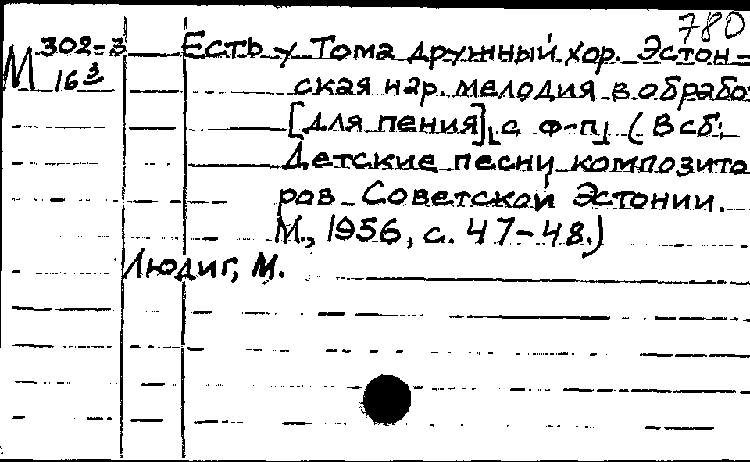 780
М 302-3
16 3
Есть у Тома дружный хор. Эстон=
ская нар. мелодия в обрабо
[для пения] с ф-п (В сб:
Детские песни композито
ров Советской Эстонии.
М., 1956, с. 47-48.)
Людиг, М.